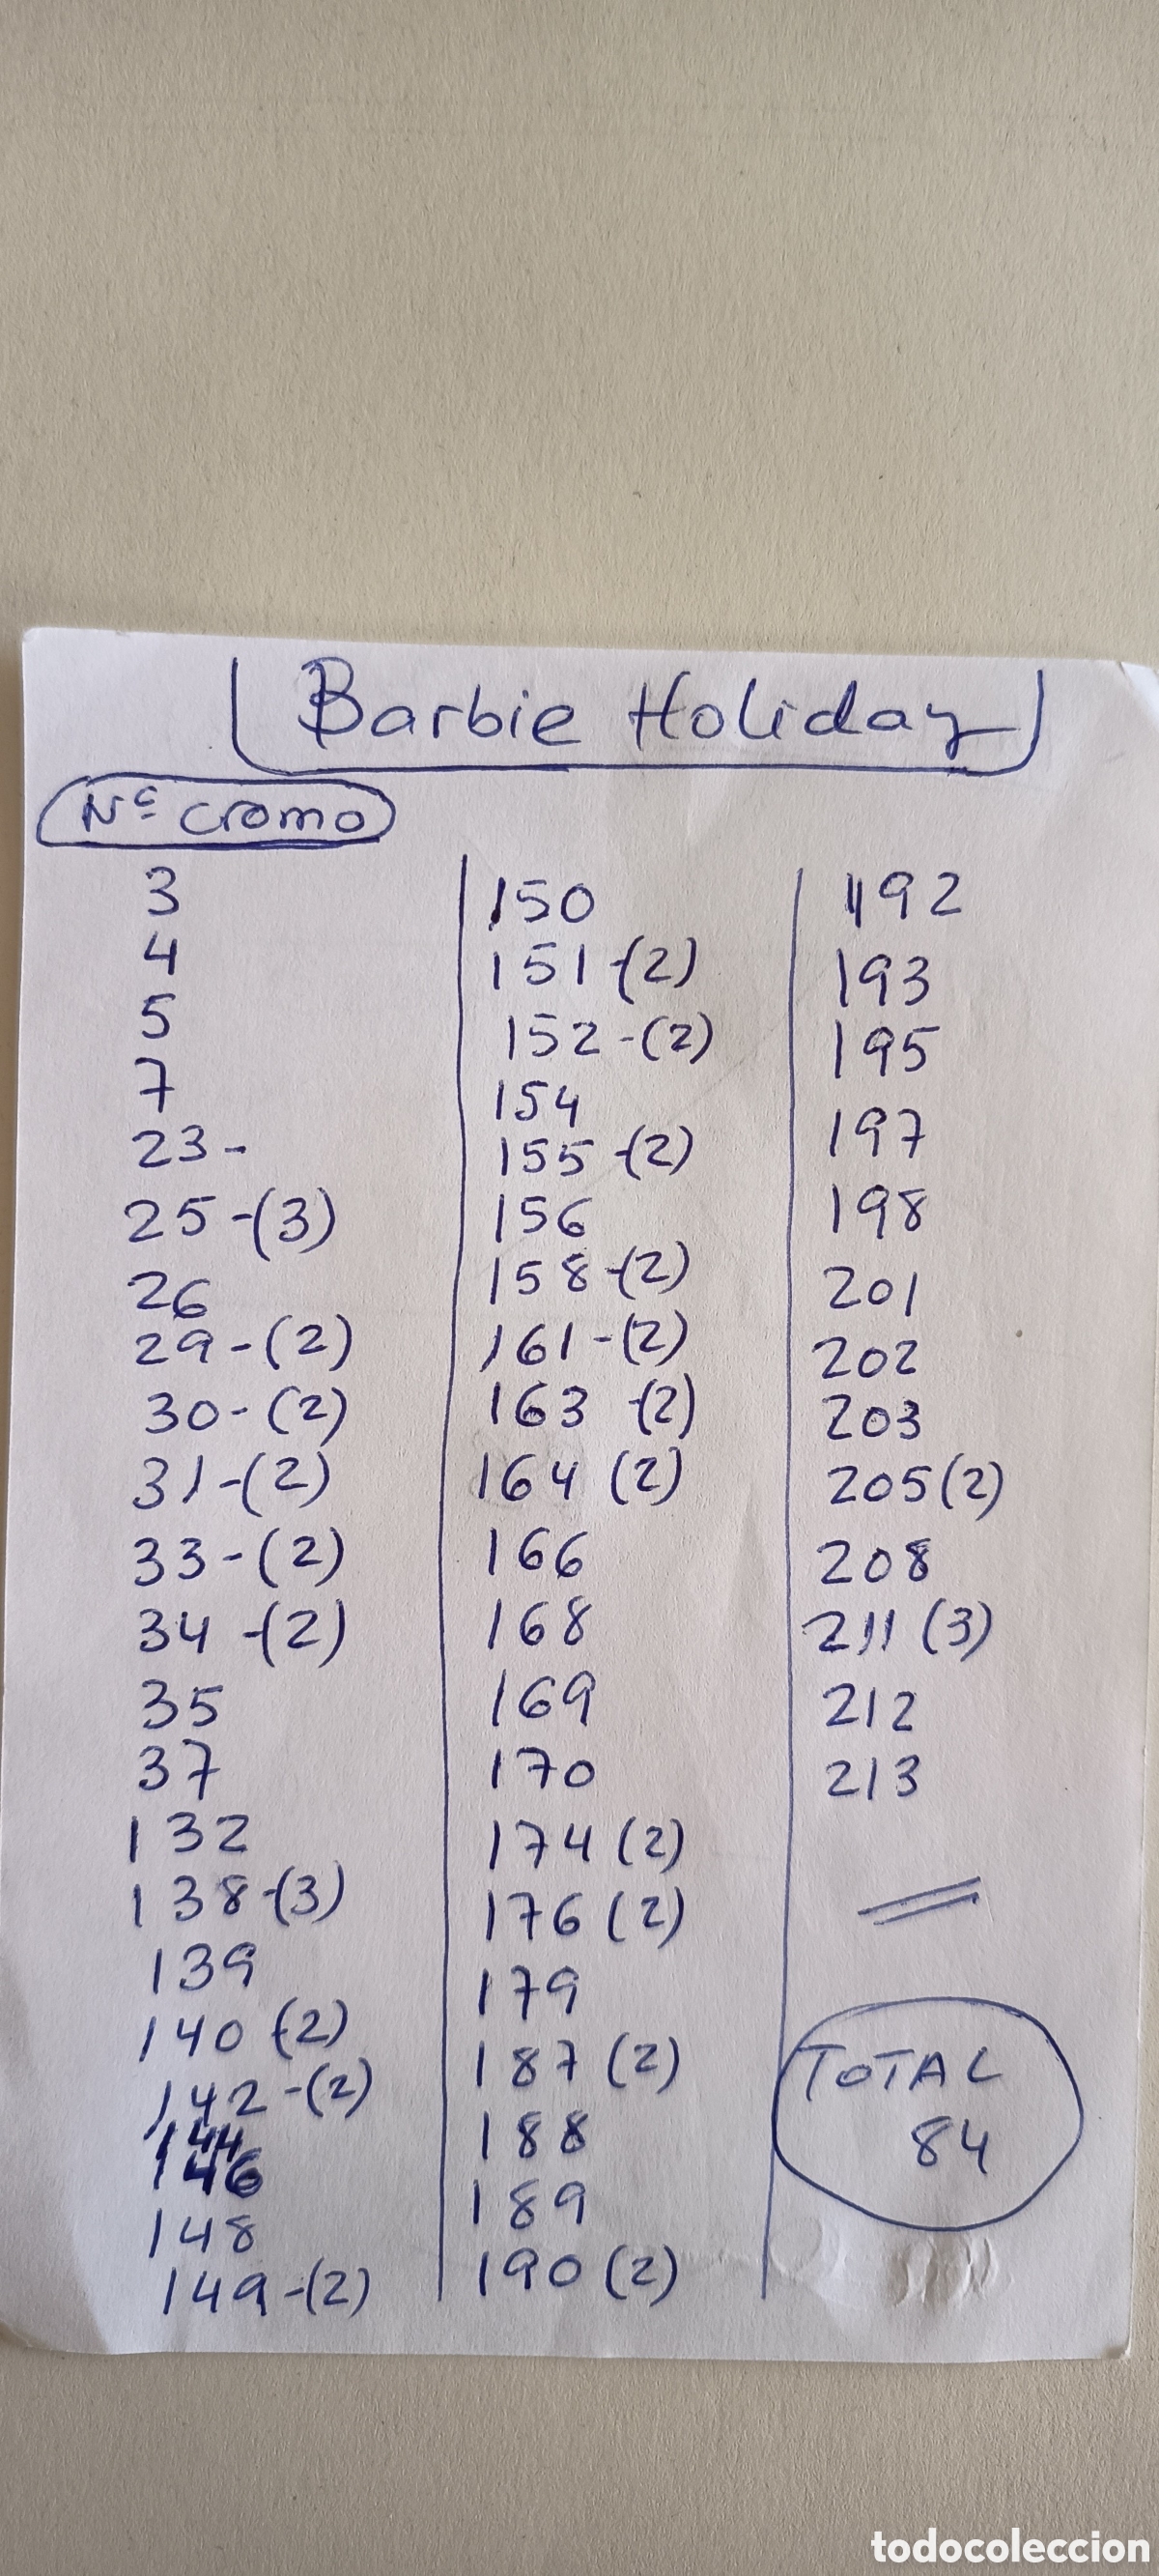 Barbie Holiday
Nº cromo
3
4
5
7
23-
25-(3)
26
29-(2)
30-(2)
31-(2)
33-(2)
34-(2)
35
37
132
138-(3)
139
140 (2)
142-(2)
144
146
148
149-(2)
150
151-(2)
152-(2)
154
155-(2)
156
158-(2)
161-(2)
163-(2)
164 (2)
166
168
169
170
174 (2)
176 (2)
179
187 (2)
188
189
190 (2)
192
193
195
197
198
201
202
203
205 (2)
208
211 (3)
212
213
TOTAL
84
todocoleccion